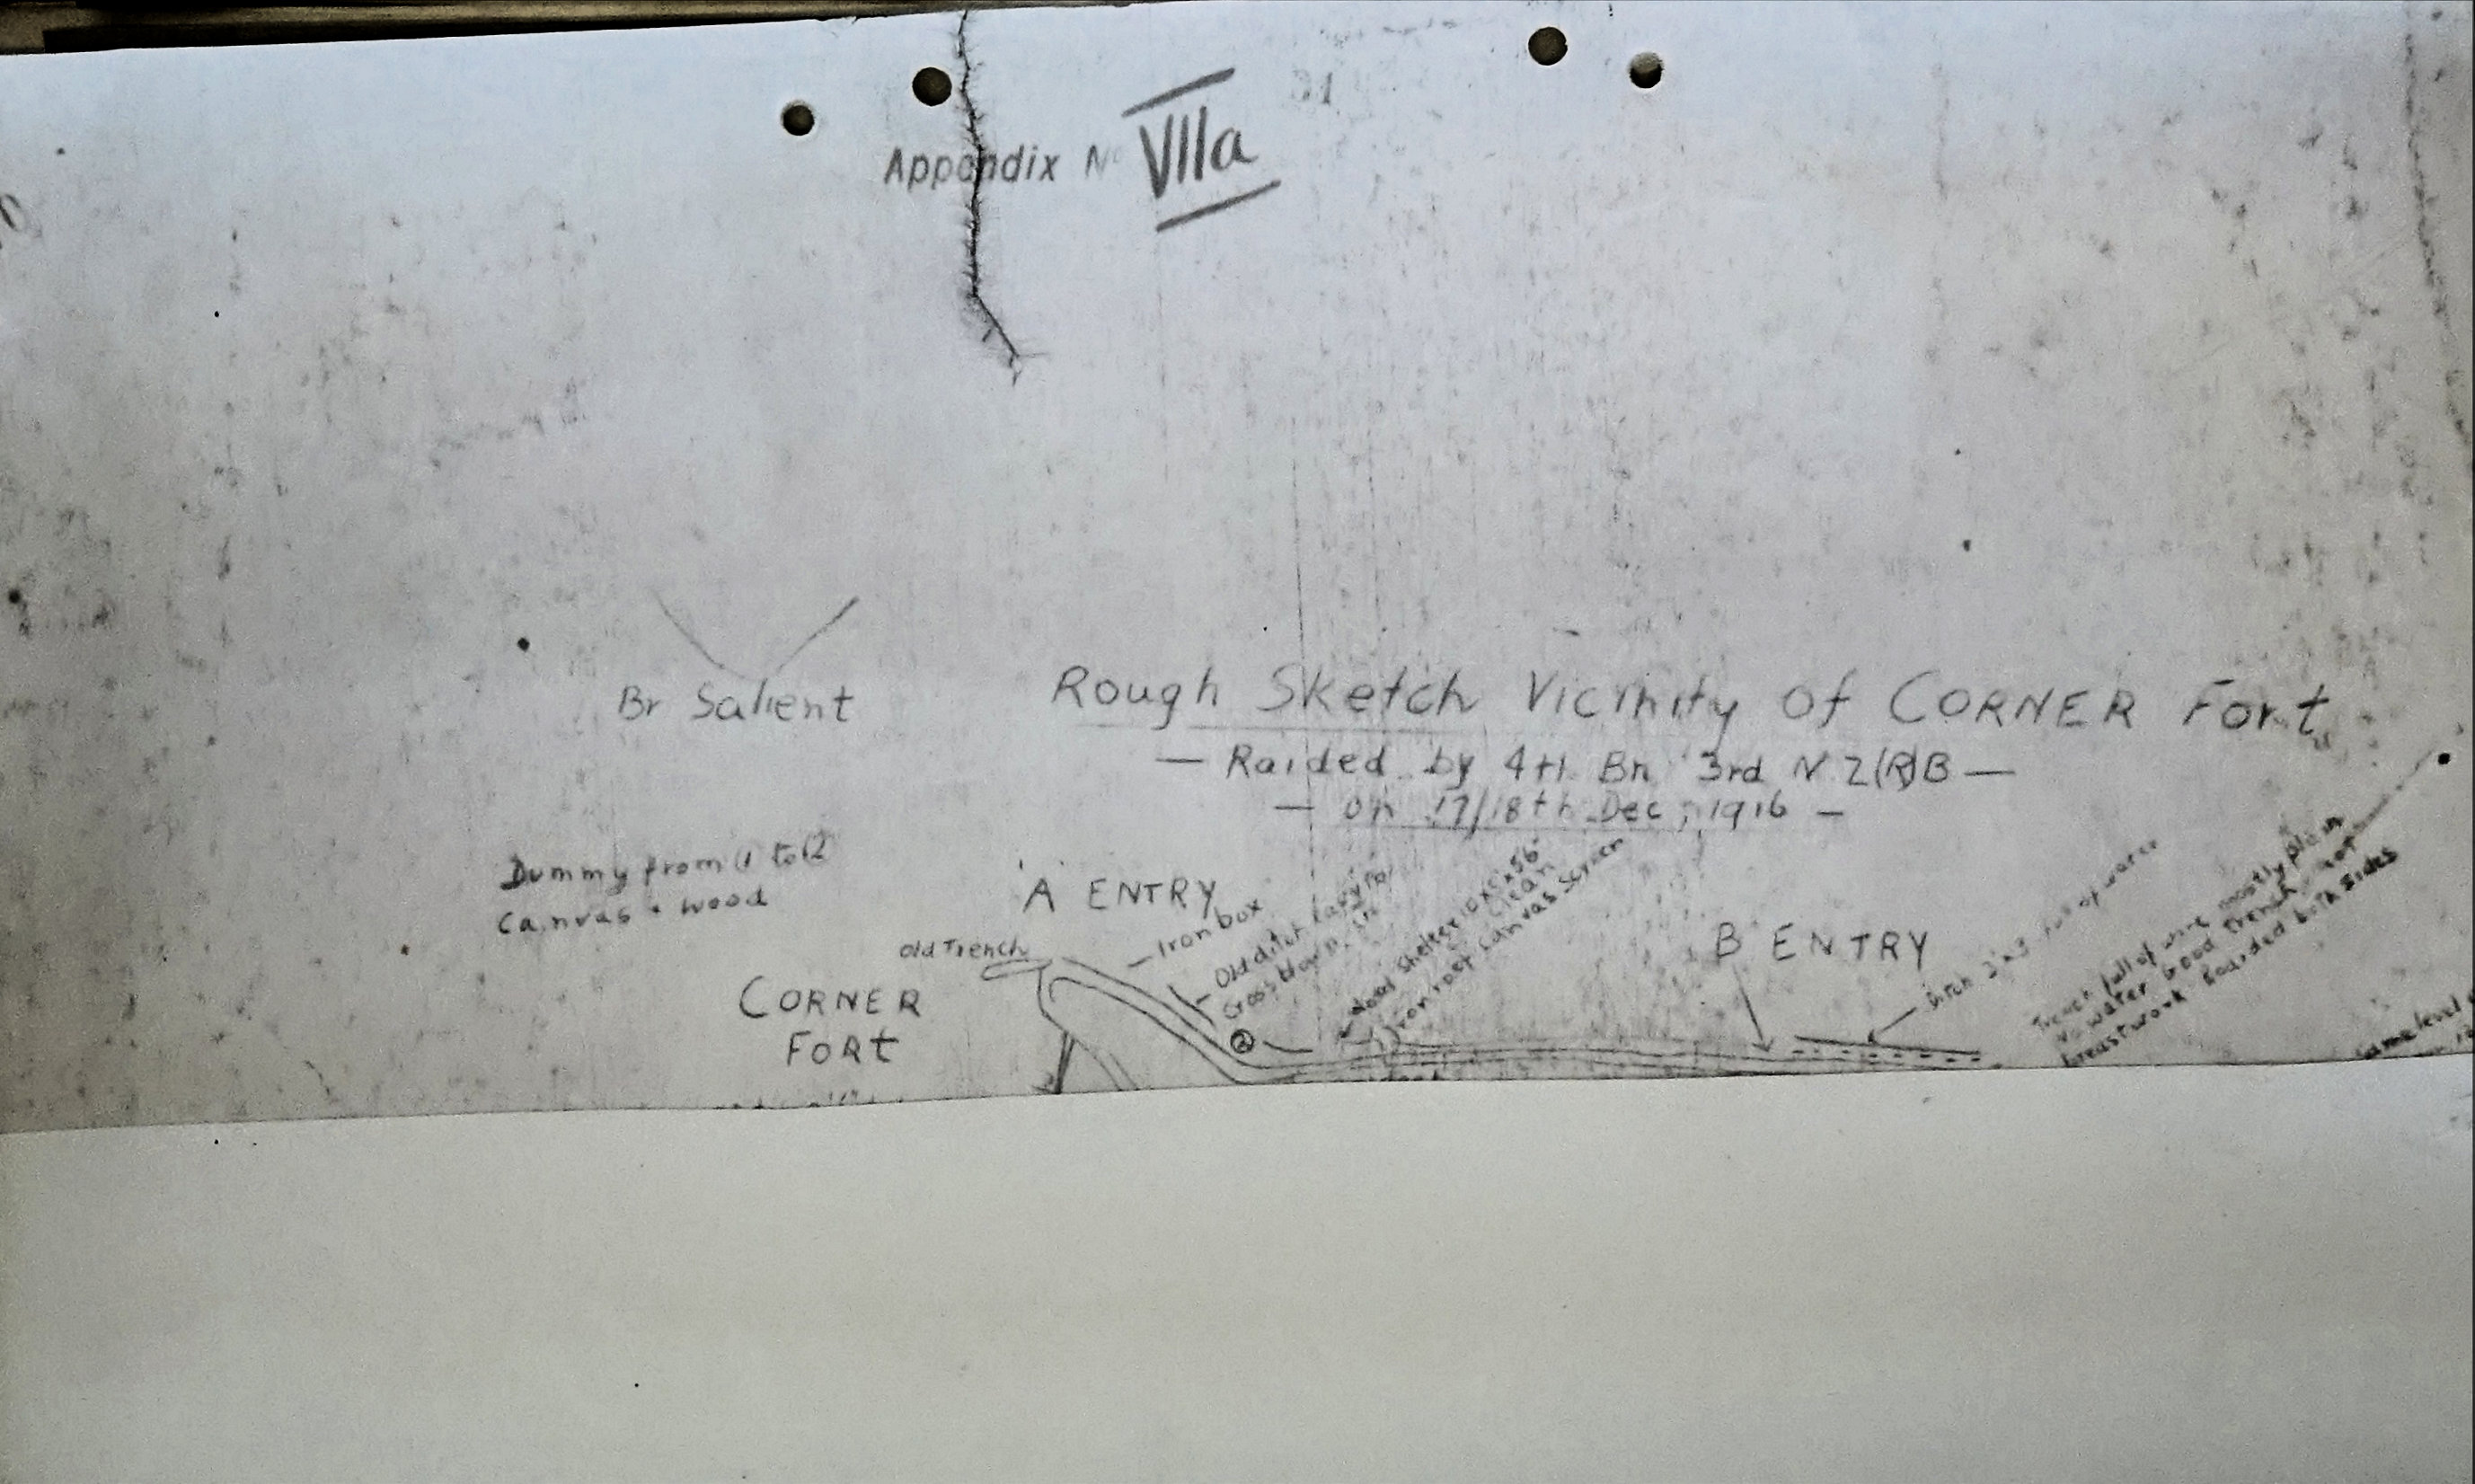 31
Appendix No VIIa
Br Salient
Rough Sketch Vicinity of CORNER Fort
— Raided by 4th Bn 3rd N Z (R) B —
— on 17/18th Dec, 1916 —
Dummy from 1 to 2
Canvas & wood
'A' ENTRY
Iron box
Old Trench
Old ditch
Grass blown in
Wood Shelter
Clean
Iron roof Canvas Screen
B ENTRY
Ditch full of water
Trench full of wire mostly plain
water Good Trench not
breastwork Boarded both sides
Same level
CORNER
FORt
2